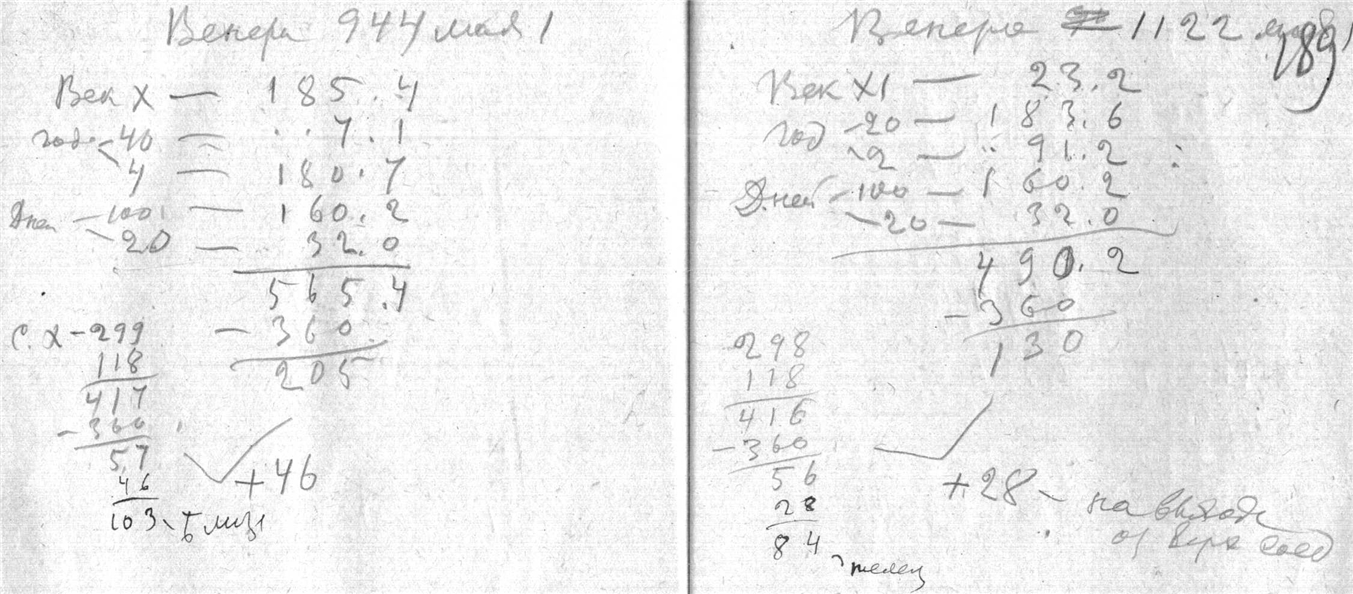 Венера 944 мая 1
Век X — 185.4
год - 40 — ..7.1
4 — 180.7
Дней - 100 — 160.2
- 20 — 32.0
565.4
- 360
205
С. X - 299
118
417
- 360
57
46
103 - Близ
+46
Венера 1122 мая 1
189
Век XI — 23.2
год - 20 — 183.6
- 2 — ..91.2
Дней - 100 — 160.2
- 20 — 32.0
490.2
- 360
130
298
118
416
- 360
56
28
84
телец
+28 - на
от Верх соед